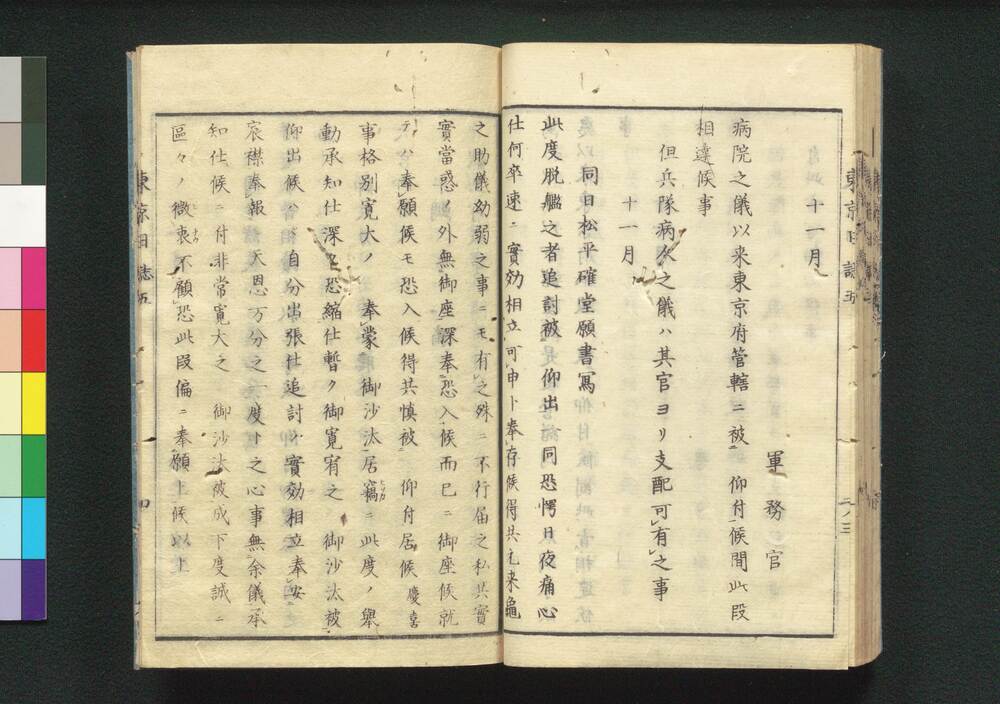 十一月
軍務官
病院之儀以来東京府管轄ニ被　仰付候間此段
相違候事
但兵隊病久之儀ハ其官ヨリ支配可有之事
十一月
同日松平確堂願書写
此度脱艦之者追討被　仰出一同恐愕日夜痛心
仕何卒速ニ實効相立可申ト奉存候得共元来龜
之助儀幼弱之事ニモ有之殊ニ不行届之私共實
實當惑ノ外無御座深奉恐入候而已ニ御座候就
テハ奉願候モ恐入候得共慎被　仰付居候慶喜
事格別寛大ノ　奉蒙　御沙汰居竊ニ此度ノ舉
動承知仕深ク恐縮仕暫ク御寛宥之　御沙汰被
仰出候ハヽ自分出張仕追討ノ實効相立奉安
宸襟奉報　天恩万分之一度ト之心事無余儀承
知仕候ニ付非常寛大之　御沙汰被成下度誠ニ
區々ノ微衷不顧恐此段偏ニ奉願上候以上
東京日誌五
四